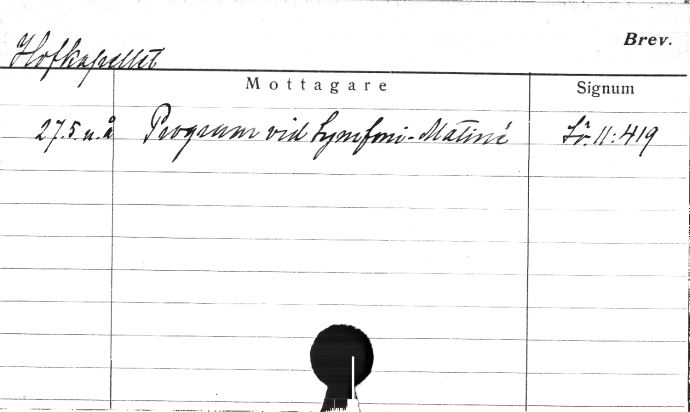 Brev.
Hofkapellet
Mottagare Signum
27.5.u.å Program vid Symfoni-Matiné 11:419